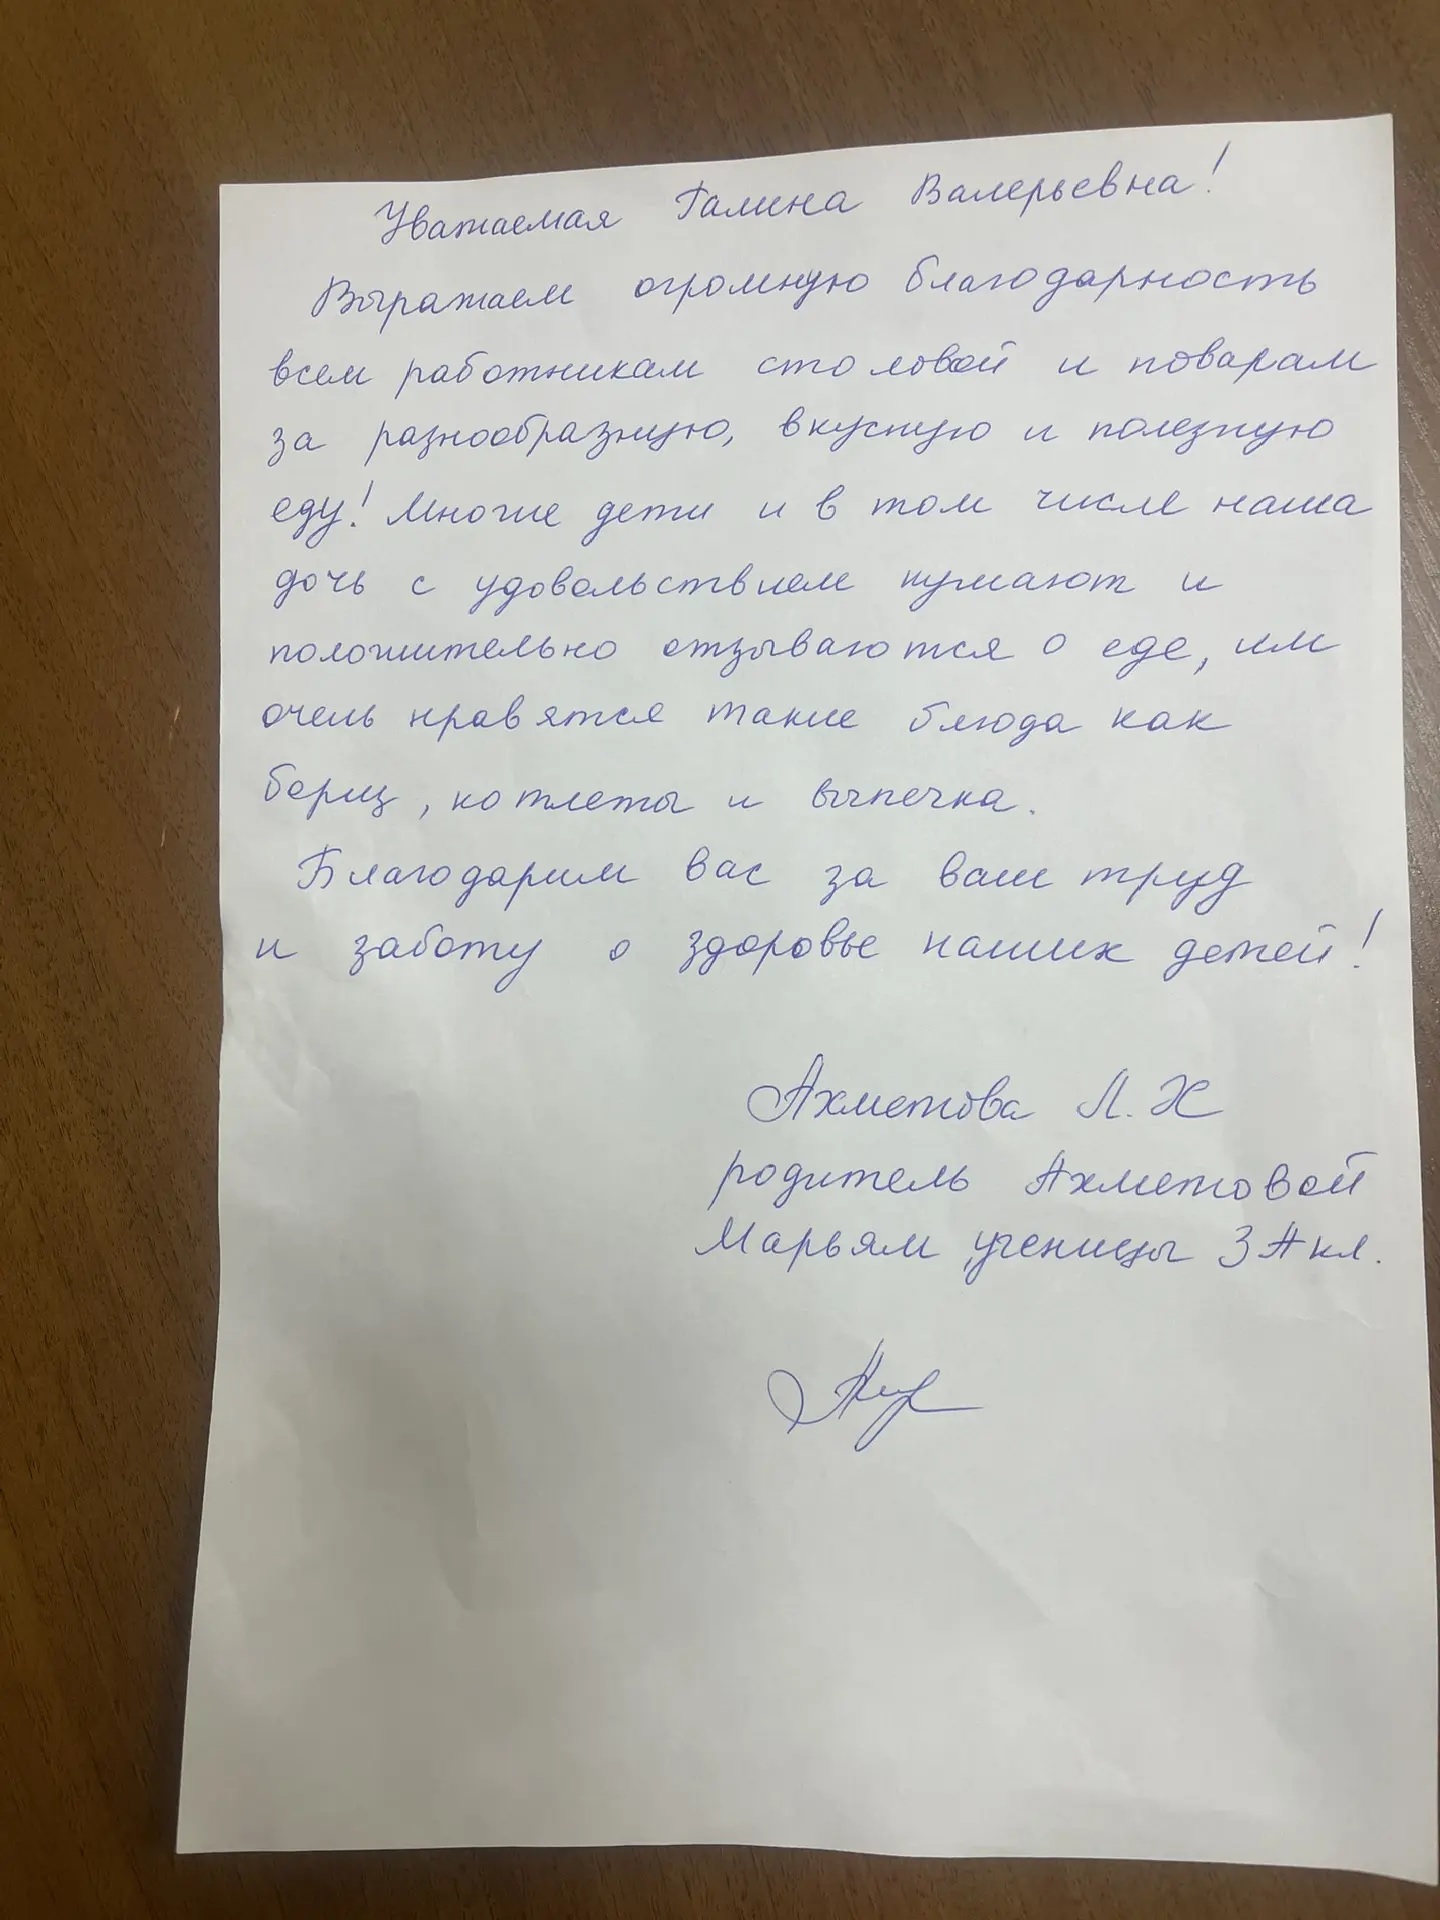 Уважаемая Галина Валерьевна!
Выражаем огромную благодарность
всем работникам столовой и поварам
за разнообразную, вкусную и полезную
еду! Многие дети и в том числе наша
дочь с удовольствием кушают и
положительно отзываются о еде, им
очень нравятся такие блюда как
борщ, котлеты и выпечка.
Благодарим вас за ваш труд
и заботу о здоровье наших детей!
Ахметова Л. Х
родитель Ахметовой
Марьям, ученицы 3 А кл.